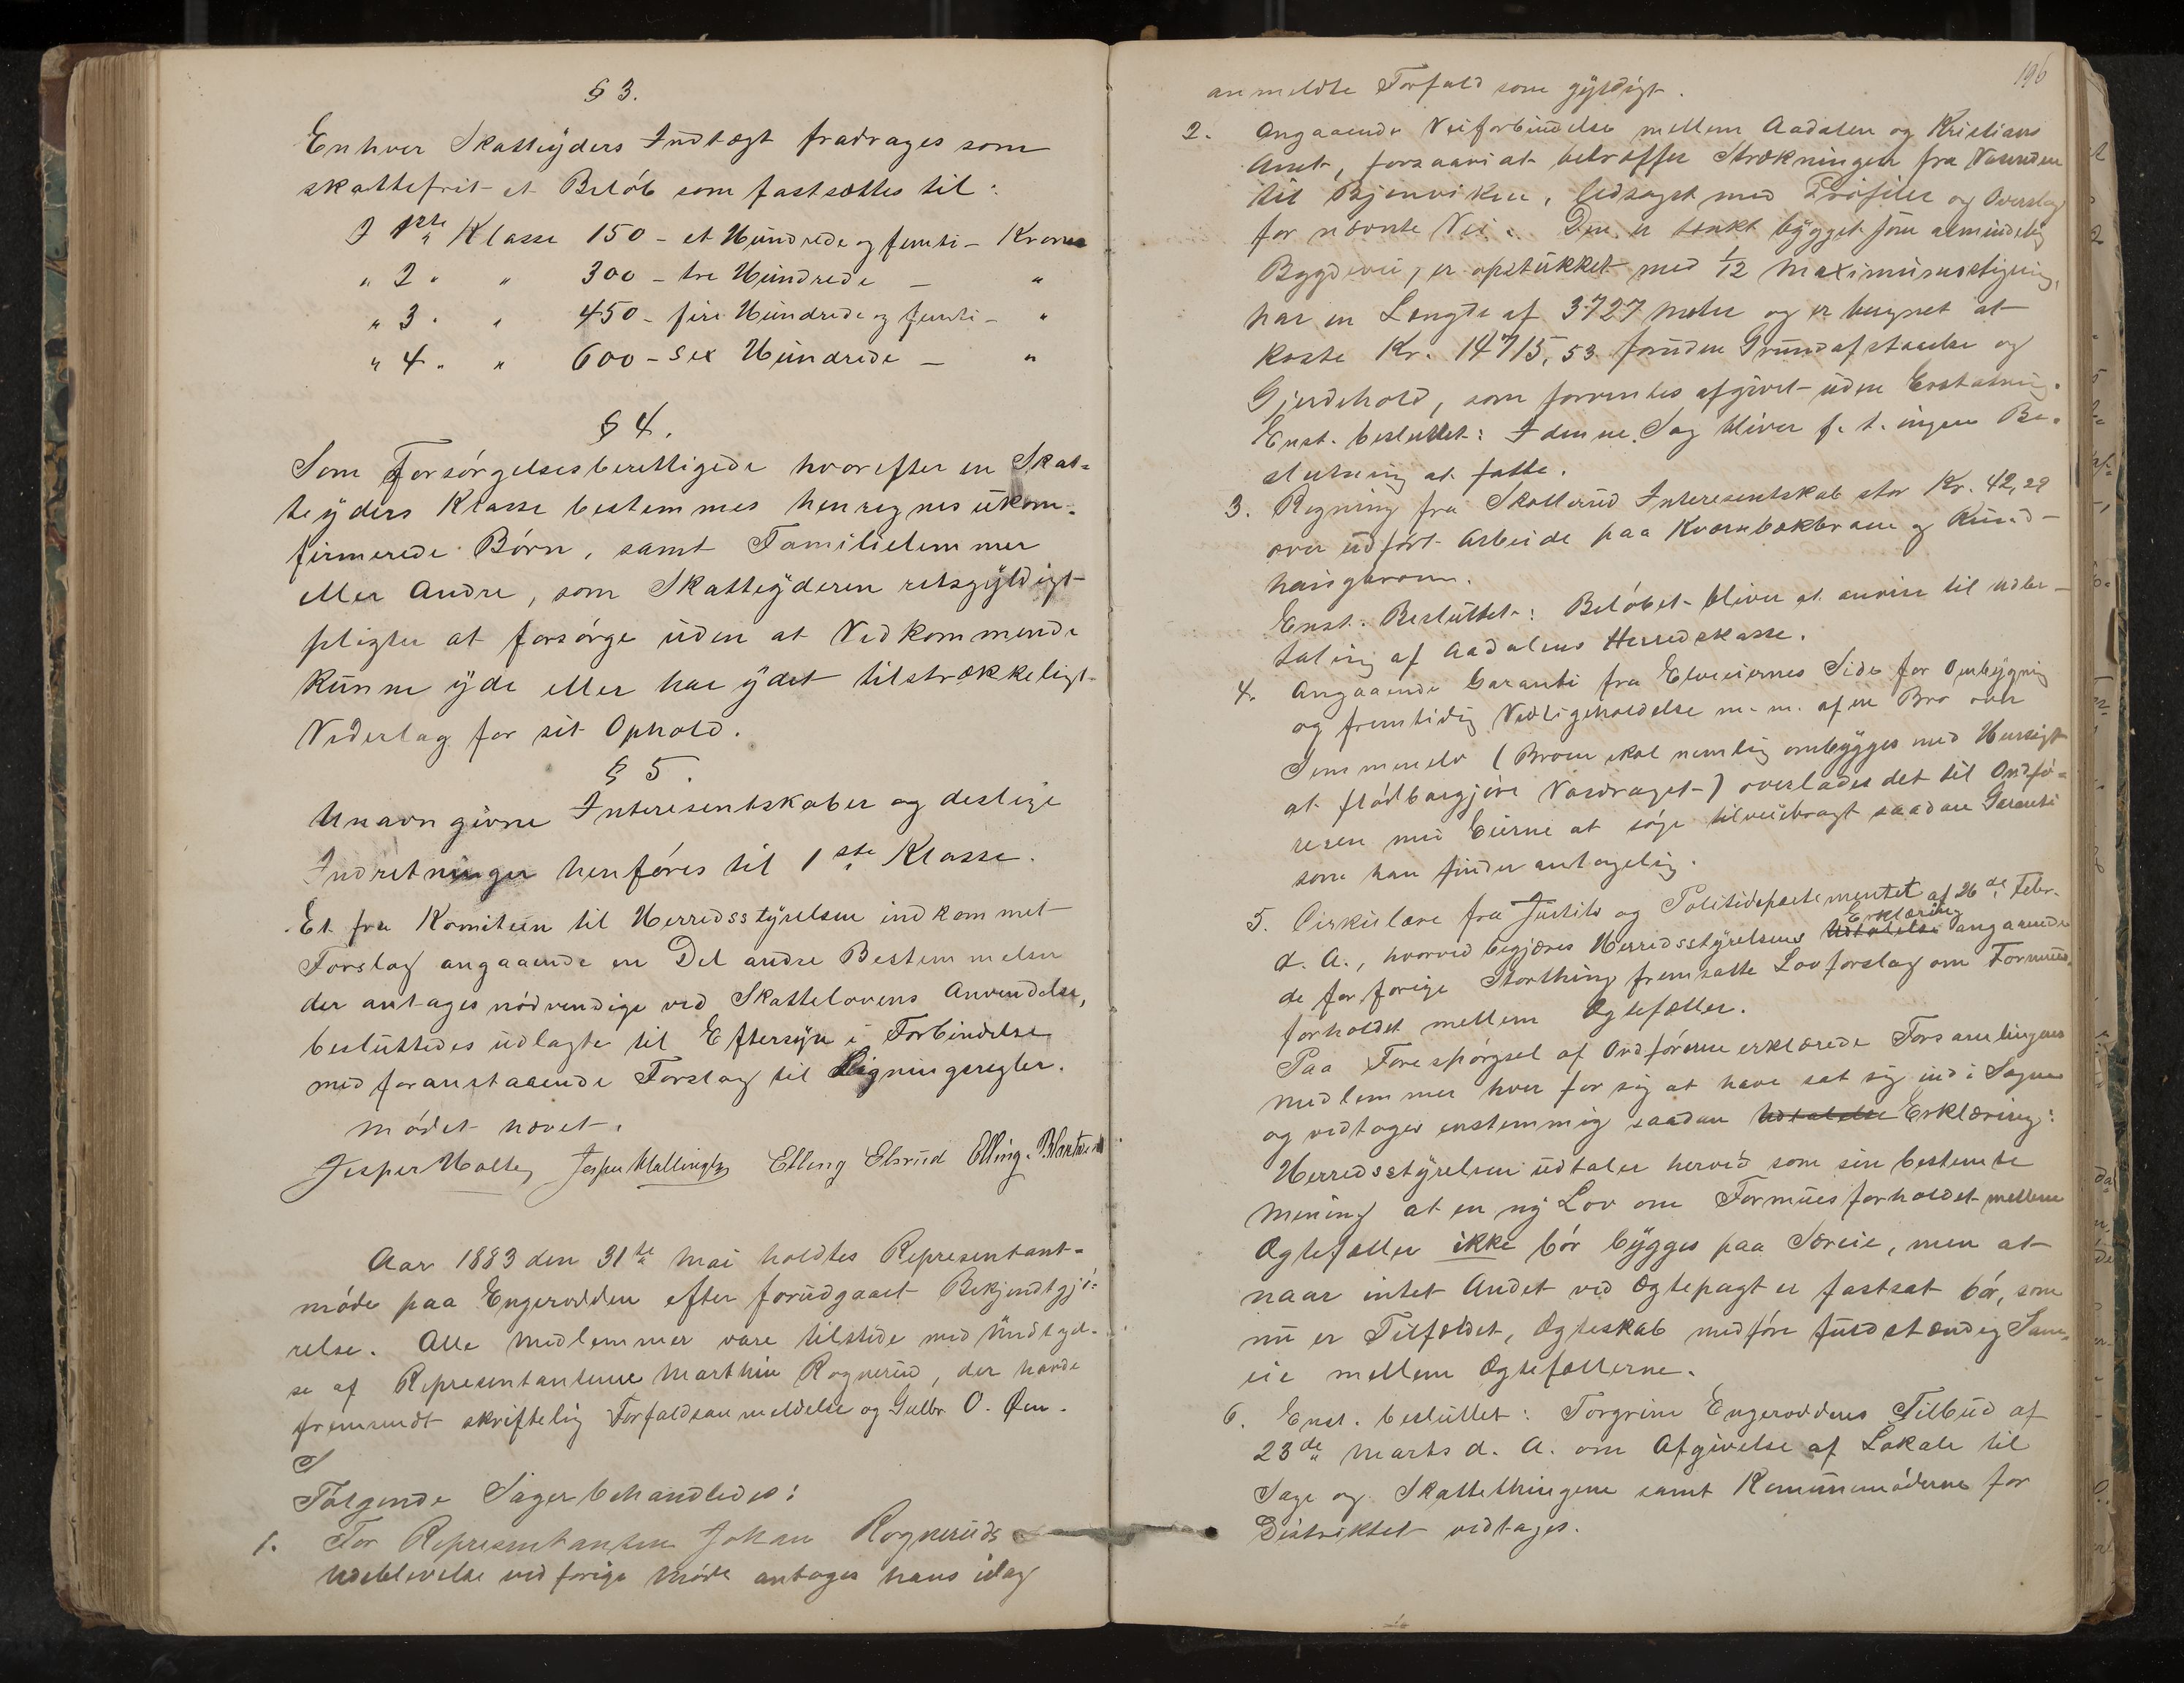 § 3.
Enhver Skatteyders Indtægt fradrages som
skattefrit et Beløb som fastsættes til:
I 1ste Klasse 150 - et Hundrede og femti - Kroner
" 2 " " 300 - tre Hundrede - "
" 3 " " 450 - fire Hundrede og femti - "
" 4 " " 600 - sex Hundrede - "
§ 4.
Som Forsørgelsesberettigede hvorefter en Skat-
teyders Klasse bestemmes henregnes ukon-
firmerede Børn, samt Familielemmer
eller Andre, som Skatteyderen retsgyldigt
pligter at forsørge uden at Vedkommende
kunne yde eller har ydet tilstrækkeligt
Vederlag for sit Ophold.
§ 5.
Unavngivne Interesentskaber og deslige
Indretninger henføres til 1ste Klasse.
Et fra Komiteen til Herredsstyrelsen indkommet
Forslag angaaende en Del andre Bestemmelser
der antages nødvendige ved Skattelovens Anvendelse,
besluttedes udlagte til Eftersyn i Forbindelse
med foranstaaende Forslag til Ligningsregler.
Mødet hævet.
Jesper Holte Elling Elsrud Elling
Aar 1883 den 31te Mai holdtes Representant-
møde paa Engerodden efter forudgaaet Bekjendtgjø-
relse. Alle Medlemmer vare tilstede med Undtagel-
se af Representanterne Marthin Rognerud, der havde
fremsendt skriftelig Forfaldsanmeldelse og Gulbr. O. Øen.
Følgende Sager behandledes:
1. For Representanten Johan Rogneruds
Udeblivelse ved forige Møde antages hans idag
196
anmeldte Forfald som gyldigt.
2. Angaaende Veiforbindelse mellem Aadalen og Kristians
Amt, forsaavidt betræffer Strækningen fra
til Bjonviken, ledsaget med Profiler og Overslag
for nævnte Vei. Den er tænkt bygget som almindelig
Bygdevei, er opstukket med 1/12 Maximumsstigning,
har en Længde af 3727 Meter og er beregnet at
koste Kr. 14715,53 foruden Grundafstaaelse og
Gjerdehold, som forventes afgivet uden Erstatning.
Enst. besluttet: I denne Sag bliver f. t. ingen Be-
slutning at fatte.
3. Regning fra Skollerud Interesentskab stor Kr. 42,29
over udført Arbeide paa Kværnbækbroen og Rund-
haugbroen.
Enst. Besluttet: Beløbet bliver at anvise til udbe-
taling af Aadalens Herredskasse.
4. Angaaende Garanti fra Elveeiernes Side for Ombygning
og fremtidig Vedligeholdelse m. m. af en Bro over
(Broen skal nemlig ombygges med Hensigt
at flødbargjøre Vasdraget) overlades det til Ordfø-
reren med Eierne at søge tilveiebragt saadan Garanti
som han finder antagelig.
5. Cirkulære fra Justits og Politidepartementet af 26de Febr.
d. A., hvorved begjæres Herredsstyrelsens Udtalelse Erklæring angaaende
de for forige Storthing fremsatte Lovforslag om Formues-
forholdet mellem Ægtefæller.
Paa Forespørgsel af Ordføreren erklærede Forsamlingens
Medlemmer hver for sig at have sat sig ind i Sagen
og vedtoges enstemmig saadan Udtalelse Erklæring:
Herredsstyrelsen udtaler herved som sin bestemte
Mening at en ny Lov om Formuesforholdet mellem
Ægtefæller ikke bør bygges paa Særeie, men at
naar intet Andet ved Ægtepagt er fastsat bør, som
nu er Tilfældet, Ægteskab medføre fuldstændig Sam-
eie mellem Ægtefællerne.
6. Enst. besluttet: Torgrim Engeroddens Tilbud af
23de Marts d. A. om Afgivelse af Lokale til
Sage og Skattethingene samt Komunemøderne for
Distriktet vedtages.